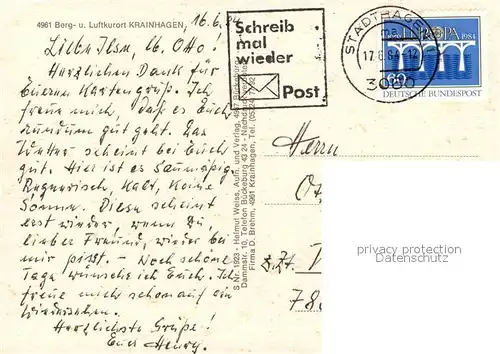 4961 Berg- u. Luftkurort KRAINHAGEN, 16.6.84
Liebe Ilse, lb. Otto!
Herzlichen Dank für
Eueren Kartengruß. Ich
freue mich, daß es Euch
rundum gut geht. Das
Wetter scheint bei Euch
gut. Hier ist es Saumäßig
Regnerisch, Kalt, Keine
Sonne. Diese scheint
erst wieder wenn Du,
lieber Freund, wieder bei
mir bist. - Noch schöne
Tage wünsche ich Euch. Ich
freue mich schon auf ein
Wiedersehen.
Herzlichste Grüße!
Euer Henry.
S Nr. 1923 - Helmut Weiss, Aufn. und Verlag, 4967 Bückeburg
Dammstr. 10, Telefon Bückeburg 43 24 - Nachdruck verboten
Firma D. Brehm, 4961 Krainhagen, Tel. (05724)
Schreib
mal
wieder
Post
STADTHAGEN
17.6.84-12
3060
EUROPA 1984
60
DEUTSCHE BUNDESPOST
Herrn
z.Zt.
78
privacy protection
Datenschutz